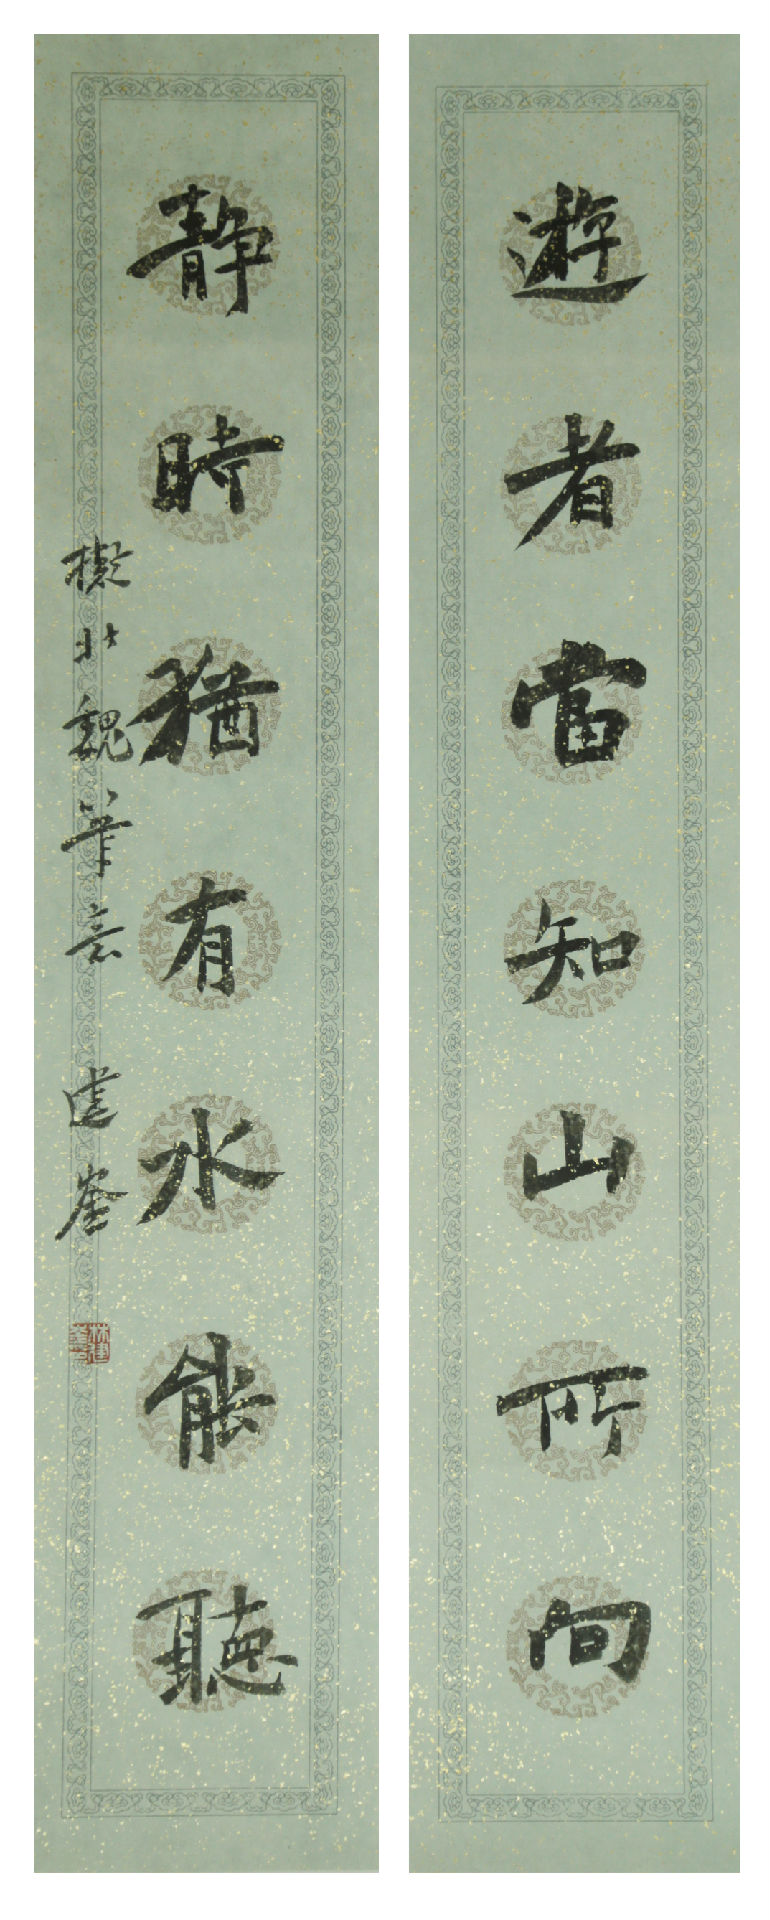 遊者當知山所向
靜時猶有水能聽
擬北魏筆意 建奎
林建奎